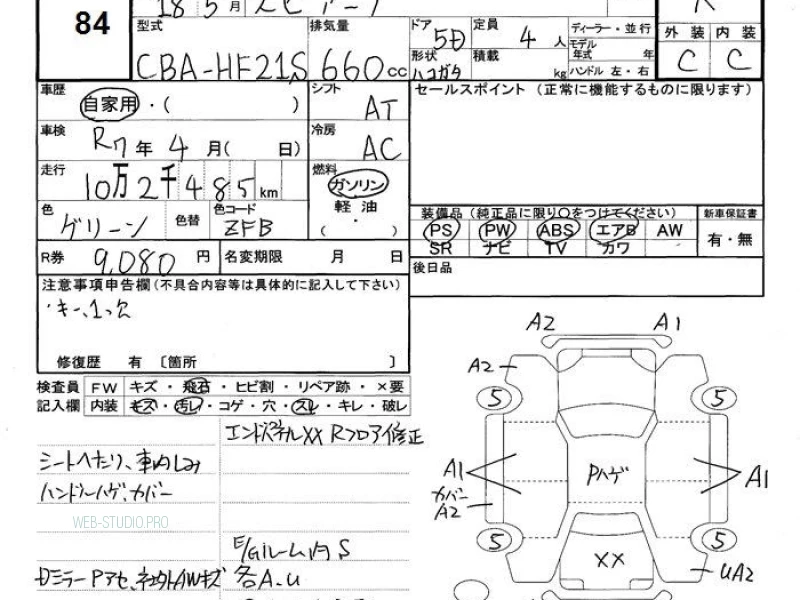 84
18 5 月 スピアーノ
型式 排気量 ドア 定員 ディーラー・並行
CBA-HF21S 660 cc 5D 4 人 モデル年式 年
形状 ハコガタ 積載 kg ハンドル 左・右
外装 内装
C C
車歴 自家用・( ) シフト AT
車検 R7年 4月( 日) 冷房 AC
走行 10万2千485 km 燃料 ガソリン
軽油
( ・ )
色 グリーン 色替 色コード ZFB
R券 9,080 円 名変期限 月 日
セールスポイント (正常に機能するものに限ります)
装備品 (純正品に限り○をつけてください) 新車保証書
PS PW ABS エアB AW 有・無
SR ナビ TV カワ
後日品
注意事項申告欄(不具合内容等は具体的に記入して下さい)
・キー、1つ欠
修復歴 有 〔箇所 〕
検査員 FW キズ・飛石・ヒビ割・リペア跡・×要
記入欄 内装 キズ・汚レ・コゲ・穴・スレ・キレ・破レ
エンドパネルXX Rフロア修正
シートヘたり、車内しみ
ハンドルハゲ、カバー
WEB-STUDIO.PRO
E/Gルーム内 S
各A.U
A2 A1
A2
5 5
A1 Pハゲ A1
カバー
A2
5 5
XX
UA2